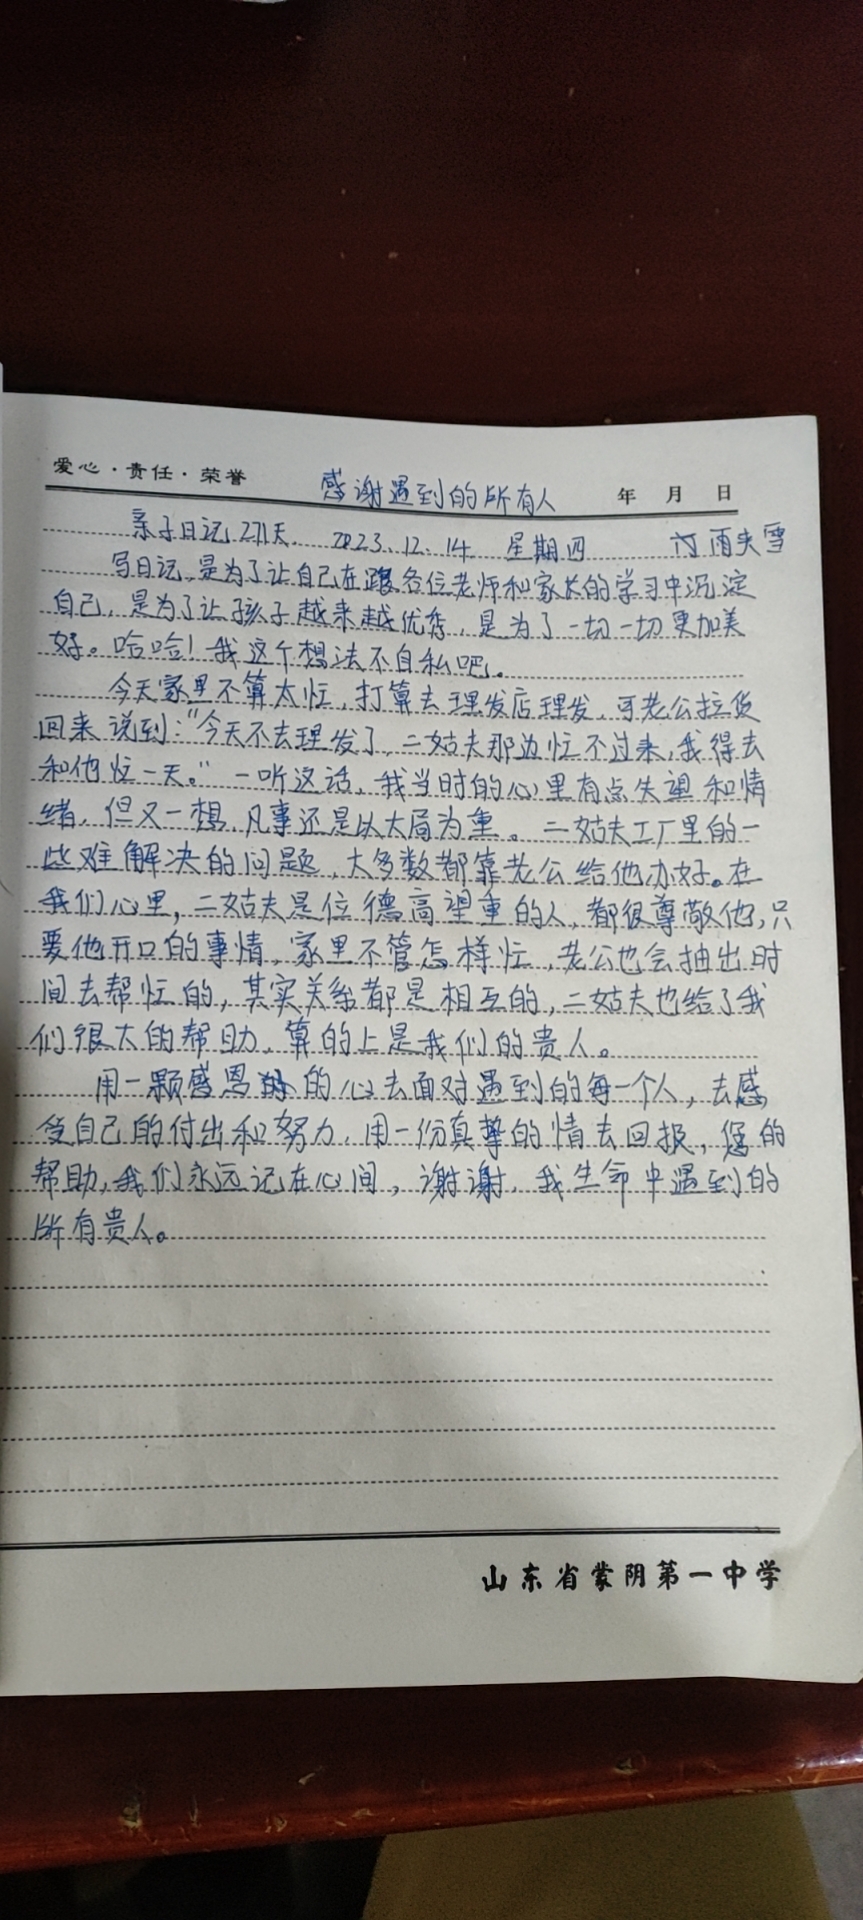 爱心·责任·荣誉
感谢遇到的所有人
年 月 日
亲子日记271天. 2023.12.14 星期四 雨夹雪
写日记,是为了让自己在跟各位老师和家长的学习中沉淀
自己,是为了让孩子越来越优秀,是为了一切一切更加美
好。哈哈!我这个想法不自私吧,。
今天家里不算太忙,打算去理发店理发,可老公拉货
回来说到:“今天不去理发了,二姑夫那边忙不过来,我得去
和他忙一天。”一听这话,我当时的心里有点失望和情
绪,但又一想,凡事还是以大局为重。二姑夫工厂里的一
些难解决的问题,大多数都靠老公给他办好。在
我们心里,二姑夫是位德高望重的人,都很尊敬他,只
要他开口的事情,家里不管怎样忙,老公也会抽出时
间去帮忙的,其实关系都是相互的,二姑夫也给了我
们很大的帮助,算的上是我们的贵人。
用一颗感恩的心去面对遇到的每一个人,去感
受自己的付出和努力,用一份真挚的情去回报,您的
帮助,我们永远记在心间,谢谢,我生命中遇到的
所有贵人。
山东省蒙阴第一中学